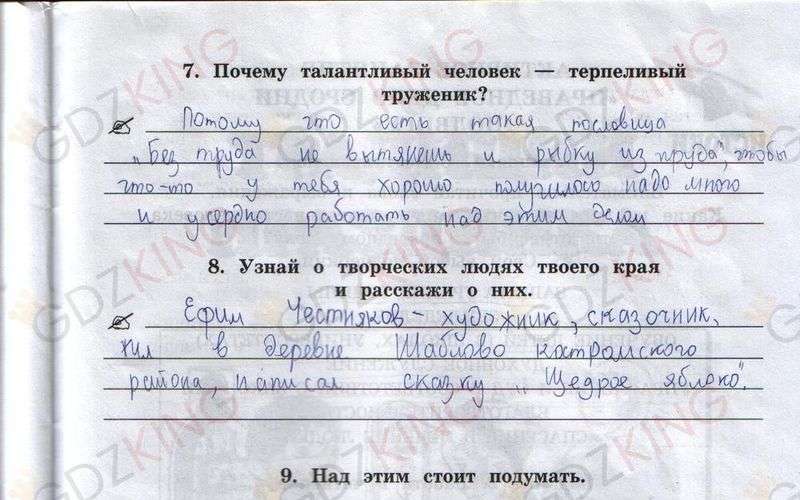 7. Почему талантливый человек — терпеливый
труженик?
Потому что есть такая пословица
„Без труда не вытянешь и рыбку из пруда", чтобы
что-то у тебя хорошо получилось надо много
и усердно работать над этим делом
8. Узнай о творческих людях твоего края
и расскажи о них.
Ефим Честняков - художник, сказочник,
жил в деревне Шаблово костромского
района, написал сказку „Щедрое яблоко".
9. Над этим стоит подумать.
GDZKING